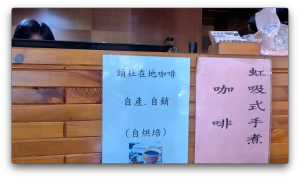 頭社在地咖啡
自產.自銷
(自烘焙)
虹吸式手煮
咖啡